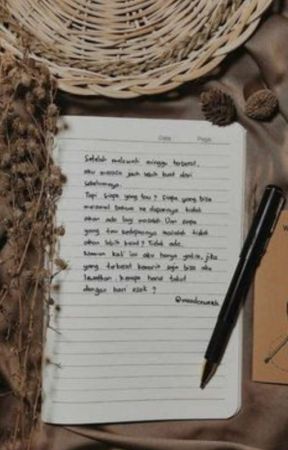 Date Page
Setelah melewati minggu terberat,
aku merasa jauh lebih kuat dari
sebelumnya.
Tapi siapa yang tau? Siapa yang bisa
menjamin bahwa ke depannya tidak
akan ada lagi masalah. Dan siapa
yang tau kedepannya masalah tidak
akan lebih berat? Tidak ada.
Namun kali ini aku hanya yakin, jika
yang terberat kemarin saja bisa aku
lewatkan, kenapa harus takut
dengan hari esok?